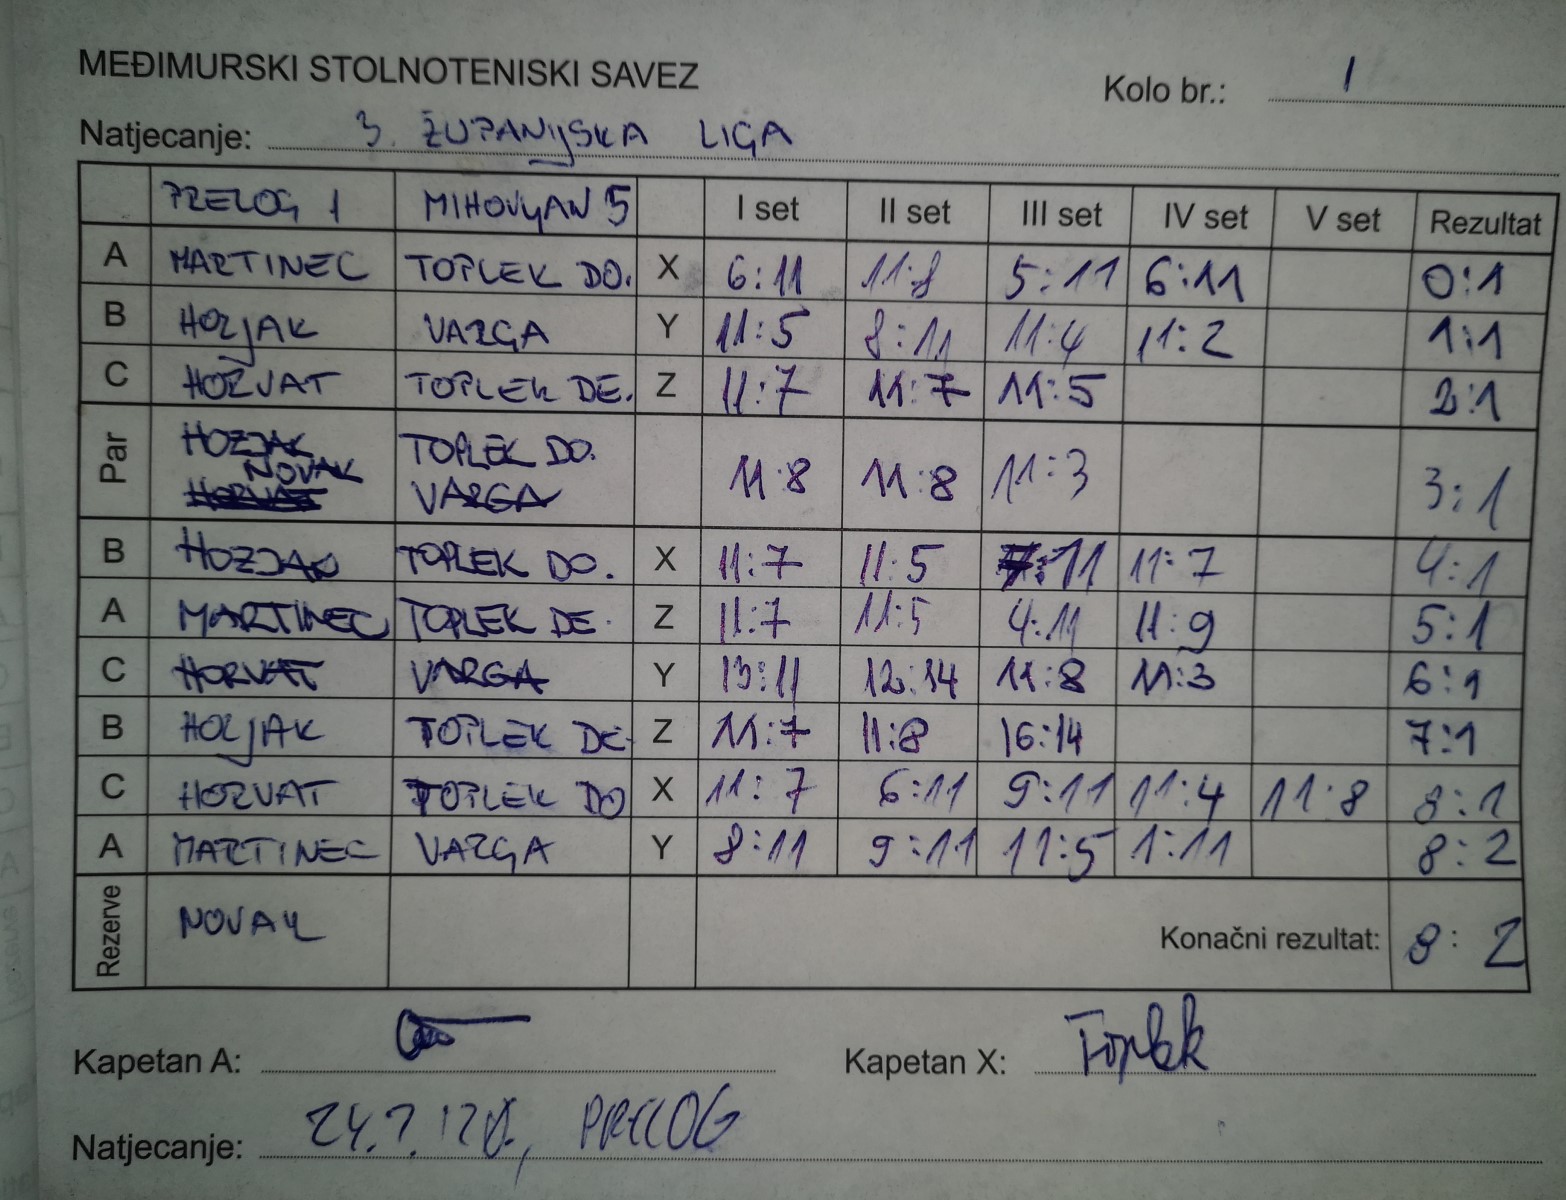 MEĐIMURSKI STOLNOTENISKI SAVEZ
Kolo br.: 1
Natjecanje: 3. ŽUPANIJSKA LIGA
PRELOG 1 MIHOVLJAN 5 I set II set III set IV set V set Rezultat
A MARTINEC TOPLEK DO. X 6:11 11:8 5:11 6:11 0:1
B HOZJAK VARGA Y 11:5 8:11 11:4 11:2 1:1
C HORVAT TOPLEK DE. Z 11:7 11:7 11:5 2:1
Par HOZJAK NOVAK TOPLEK DO. VARGA 11:8 11:8 11:3 3:1
B HOZJAK TOPLEK DO. X 11:7 11:5 7:11 11:7 4:1
A MARTINEC TOPLEK DE. Z 11:7 11:5 4:11 11:9 5:1
C HORVAT VARGA Y 13:11 12:14 11:8 11:3 6:1
B HOZJAK TOPLEK DE. Z 11:7 11:8 16:14 7:1
C HORVAT TOPLEK DO X 11:7 6:11 9:11 11:4 11:8 8:1
A MARTINEC VARGA Y 8:11 9:11 11:5 1:11 8:2
Rezerve NOVAK Konačni rezultat: 8:2
Kapetan A:
Kapetan X: Toplek
Natjecanje: PRELOG